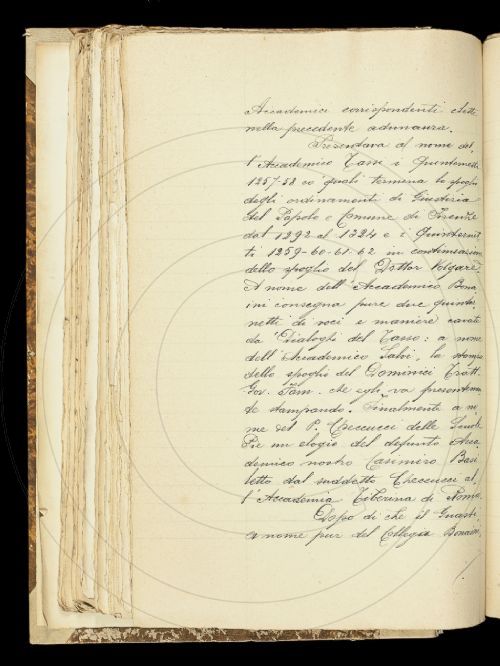 Accademici corrispondenti eletti
nella precedente adunanza.
Presentava al nome del
l'Accademico Tassi i Quinternetti
1257-58 co' quali termina lo spoglio
degli ordinamenti di Giustizia
del Popolo e Comune di Firenze
dal 1292 al 1324 e i Quinternet
ti 1259-60-61-62 in continuazione
dello spoglio del Dottor Volgare.
A nome dell'Accademico Bona
ini consegna pure due quinter
netti di voci e maniere cavate
da' Dialoghi del Tasso: a nome
dell'Accademico Salvi, la stampa
dello spoglio del Dominici Tratt.
Gov. Fam. che egli va
te stampando. Finalmente a no
me del P. Checcucci delle Scuole
Pie un elogio del defunto Acca
demico nostro Casimiro Basi
letto dal suddetto Checcucci al
l'Accademia Tiberina di Roma.
Dopo di che il Guasti,
a nome pur del Collega Bonaini,